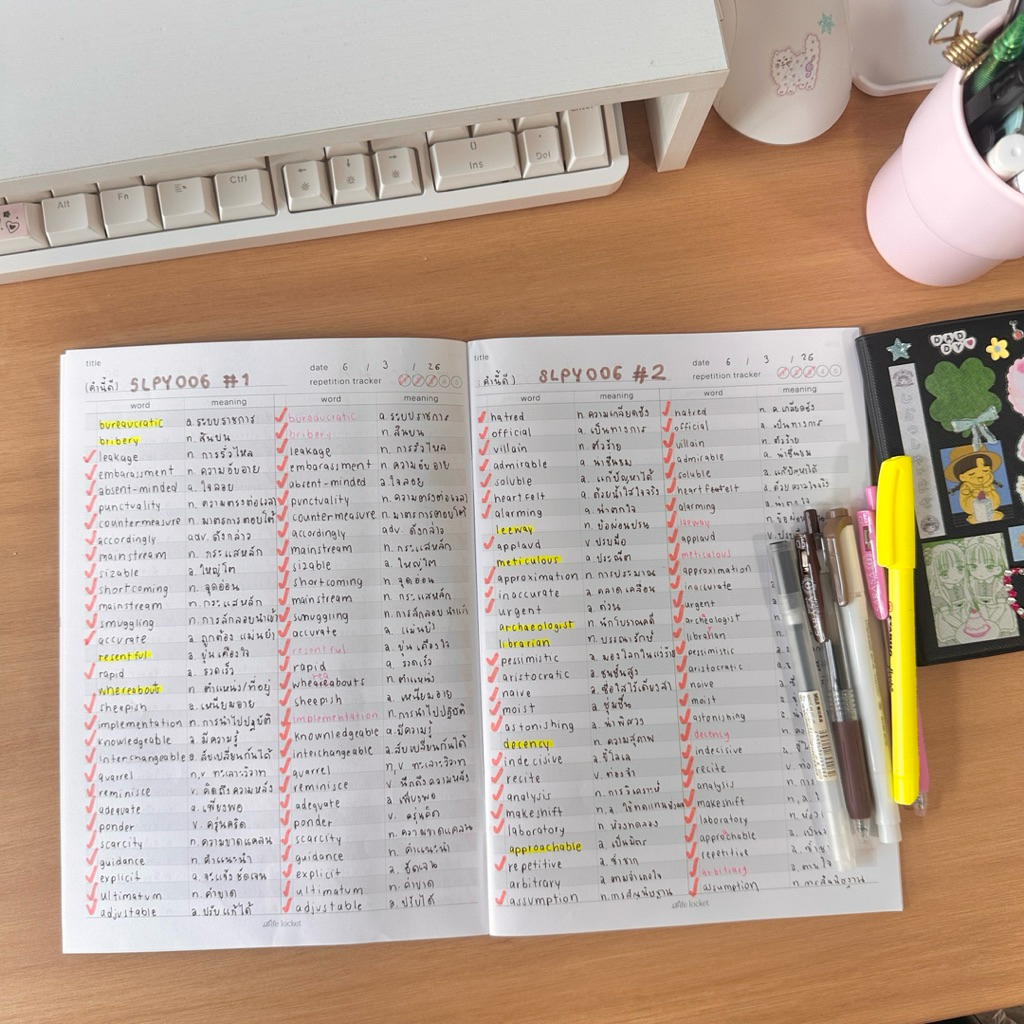 Alt
Fn
Ctrl
Ins
Del
Enter
DADDY
title
(คำนี้ดี) SLPY006 #1
date 6 / 3 / 26
repetition tracker
word meaning word meaning
bureaucratic a. ระบบราชการ bureaucratic a. ระบบราชการ
bribery n. สินบน bribery n. สินบน
leakage n. การรั่วไหล leakage n. การรั่วไหล
embarassment n. ความอับอาย embarassment n. ความอับอาย
absent-minded a. ใจลอย absent-minded a. ใจลอย
punctuality n. ความตรงต่อเวลา punctuality n. ความตรงต่อเวลา
countermeasure n. มาตรการตอบโต้ countermeasure n. มาตรการตอบโต้
accordingly adv. ดังกล่าว accordingly adv. ดังกล่าว
mainstream n. กระแสหลัก mainstream n. กระแสหลัก
sizable a. ใหญ่โต sizable a. ใหญ่โต
shortcoming n. จุดอ่อน shortcoming n. จุดอ่อน
mainstream n. กระแสหลัก mainstream n. กระแสหลัก
smuggling n. การลักลอบนำเข้า smuggling n. การลักลอบนำเข้า
accurate a. ถูกต้อง แม่นยำ accurate a. แม่นยำ
resentful a. ขุ่นเคืองใจ resentful a. ขุ่นเคืองใจ
rapid a. รวดเร็ว rapid a. รวดเร็ว
whereabouts n. ตำแหน่ง/ที่อยู่ whereabouts n. ตำแหน่ง
sheepish a. เหนียมอาย sheepish a. เหนียมอาย
implementation n. การนำไปปฏิบัติ implementation n. การนำไปปฏิบัติ
knowledgeable a. มีความรู้ knownledgeable a. มีความรู้
interchangeable a. สับเปลี่ยนกันได้ interchangeable a. สับเปลี่ยนกันได้
quarrel n,v ทะเลาะวิวาท quarrel n,v ทะเลาะวิวาท
reminisce v. คิดถึงความหลัง reminisce v. นึกถึงความหลัง
adequate a. เพียงพอ adequate a. เพียงพอ
ponder v. ครุ่นคิด ponder v. ครุ่นคิด
scarcity n. ความขาดแคลน scarcity n. ความขาดแคลน
guidance n. คำแนะนำ guidance n. คำแนะนำ
explicit a. ชัดเจน explicit a. ชัดเจน
ultimatum n. คำขาด ultimatum n. คำขาด
adjustable a. ปรับแก้ได้ adjustable a. ปรับได้
life locket
title
(คำนี้ดี) SLPY006 #2
date 6 / 3 / 26
repetition tracker
word meaning word meaning
hatred n. ความเกลียดชัง hatred n. ค.เกลียดชัง
official a. เป็นทางการ official a. เป็นทางการ
villain n. ตัวร้าย villain n. ตัวร้าย
admirable a. น่าชื่นชม admirable a. น่าชื่นชม
soluble a. แก้ปัญหาได้ soluble a. แก้ปัญหาได้
heartfelt a. ด้วยน้ำใสใจจริง heartfelt
alarming a. น่าตกใจ alarming a. น่าตกใจ
leeway n. ข้อผ่อนปรน leeway
applaud v. ปรบมือ applaud
meticulous a. ประณีต meticulous
approximation n. การประมาณ approximation
inaccurate a. คลาดเคลื่อน inaccurate
urgent a. ด่วน urgent
archaeologist n. นักโบราณคดี archeologist
librarian n. บรรณารักษ์ librarian
pessimistic a. มองโลกในแง่ร้าย pessimistic
aristocratic a. ชนชั้นสูง aristocratic
naive a. ซื่อใสไร้เดียงสา naive
moist a. ชุ่มชื้น moist
astonishing a. น่าพิศวง astonishing
decency n. ความสุภาพ decency
indecisive a. ลังเล indecisive
recite v. ท่องจำ recite
analysis n. การวิเคราะห์ analysis
makeshift n. a. makeshift n, a.
laboratory n. ห้องทดลอง laboratory
approachable a. เป็นมิตร approachable
repetitive a. ซ้ำซาก repetitive
arbitrary a. ตามอำเภอใจ arbitrary
assumption n. การสันนิษฐาน assumption n. การสันนิษฐาน
life locket